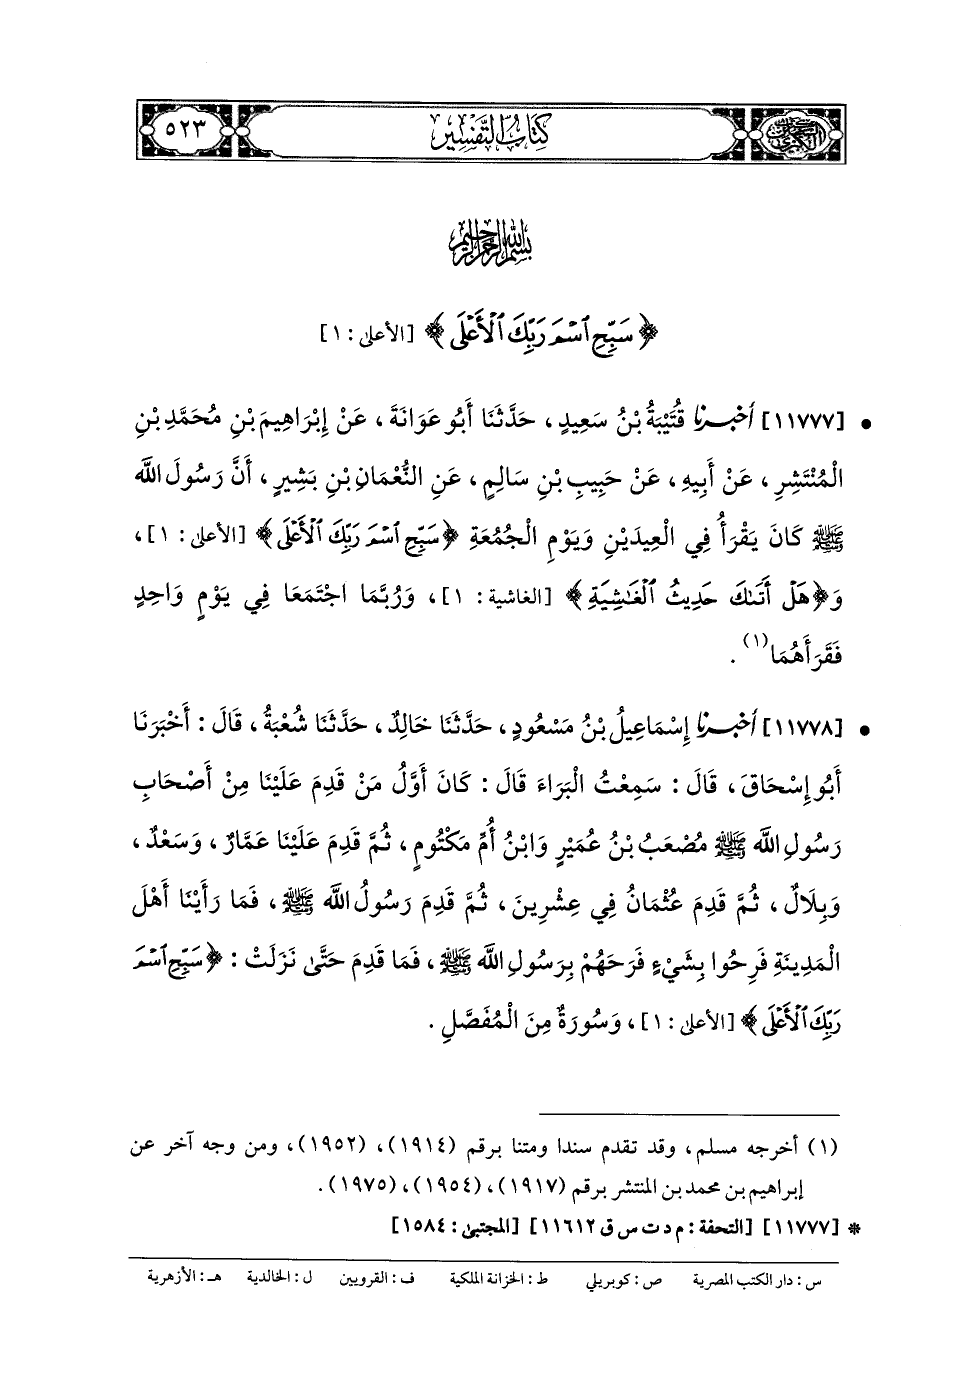 السنن الكبرى
كتاب التفسير
٥٢٣
بسم الله الرحمن الرحيم
﴿ سَبِّحِ ٱسْمَ رَبِّكَ ٱلْأَعْلَى ﴾ [الأعلى : ١]
• [١١٧٧٧] أخبرنا قُتَيْبَةُ بْنُ سَعِيدٍ، حَدَّثَنَا أَبُو عَوَانَةَ، عَنْ إِبْرَاهِيمَ بْنِ مُحَمَّدِ بْنِ
الْمُنْتَشِرِ، عَنْ أَبِيهِ، عَنْ حَبِيبِ بْنِ سَالِمٍ، عَنِ النُّعْمَانِ بْنِ بَشِيرٍ، أَنَّ رَسُولَ اللَّه
ﷺ كَانَ يَقْرَأُ فِي الْعِيدَيْنِ وَيَوْمِ الْجُمُعَةِ ﴿سَبِّحِ ٱسْمَ رَبِّكَ ٱلْأَعْلَى﴾ [الأعلى : ١]،
وَ﴿هَلْ أَتَىٰكَ حَدِيثُ ٱلْغَٰشِيَةِ﴾ [الغاشية : ١]، وَرُبَّمَا اجْتَمَعَا فِي يَوْمٍ وَاحِدٍ
فَقَرَأَهُمَا(١) .
• [١١٧٧٨] أخبرنا إِسْمَاعِيلُ بْنُ مَسْعُودٍ، حَدَّثَنَا خَالِدٌ، حَدَّثَنَا شُعْبَةُ، قَالَ : أَخْبَرَنَا
أَبُو إِسْحَاقَ، قَالَ : سَمِعْتُ الْبَرَاءَ قَالَ : كَانَ أَوَّلُ مَنْ قَدِمَ عَلَيْنَا مِنْ أَصْحَابِ
رَسُولِ اللَّه ﷺ مُصْعَبُ بْنُ عُمَيْرٍ وَابْنُ أُمِّ مَكْتُومٍ، ثُمَّ قَدِمَ عَلَيْنَا عَمَّارٌ، وَسَعْدٌ،
وَبِلَالٌ، ثُمَّ قَدِمَ عُثْمَانُ فِي عِشْرِينَ، ثُمَّ قَدِمَ رَسُولُ اللَّه ﷺ، فَمَا رَأَيْنَا أَهْلَ
الْمَدِينَةِ فَرِحُوا بِشَيْءٍ فَرَحَهُمْ بِرَسُولِ اللَّه ﷺ، فَمَا قَدِمَ حَتَّى نَزَلَتْ : ﴿سَبِّحِ ٱسْمَ
رَبِّكَ ٱلْأَعْلَى﴾ [الأعلى : ١]، وَسُورَةٌ مِنَ الْمُفَصَّلِ .
(١) أخرجه مسلم، وقد تقدم سندا ومتنا برقم (١٩١٤)، (١٩٥٢)، ومن وجه آخر عن
إبراهيم بن محمد بن المنتشر برقم (١٩١٧)، (١٩٥٤)، (١٩٧٥).
* [١١٧٧٧] [التحفة : م د ت س ق ١١٦١٢] [المجتبى : ١٥٨٤]
س : دار الكتب المصرية ص : كوبريلي ط : الخزانة الملكية ف : القرويين ل : الخالدية هـ : الأزهرية